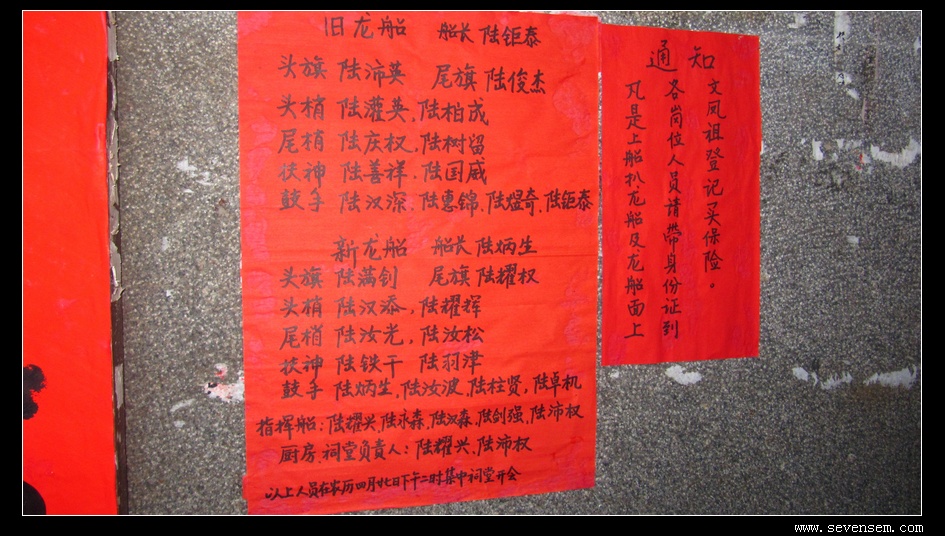 旧龙船 船长 陆钜泰
头旗 陆沛英 尾旗 陆俊杰
头梢 陆灌英、陆柏成
尾梢 陆庆权、陆树留
扶神 陆善祥、陆国威
鼓手 陆汉深、陆惠锦、陆煜奇、陆钜泰
新龙船 船长 陆炳生
头旗 陆满钊 尾旗 陆耀权
头梢 陆汉添、陆耀辉
尾梢 陆汝光、陆汝松
扶神 陆铁干 陆羽津
鼓手 陆炳生、陆汝波、陆柱贤、陆卓机
指挥船:陆耀兴、陆永森、陆汉森、陆剑强、陆沛权
厨房、祠堂负责人:陆耀兴、陆沛权
以上人员在农历四月廿日下午二时集中祠堂开会
通知
凡是上船扒龙船及龙船面上
各岗位人员请带身份证到
文凤祖登记买保险。
www.sevensem.com